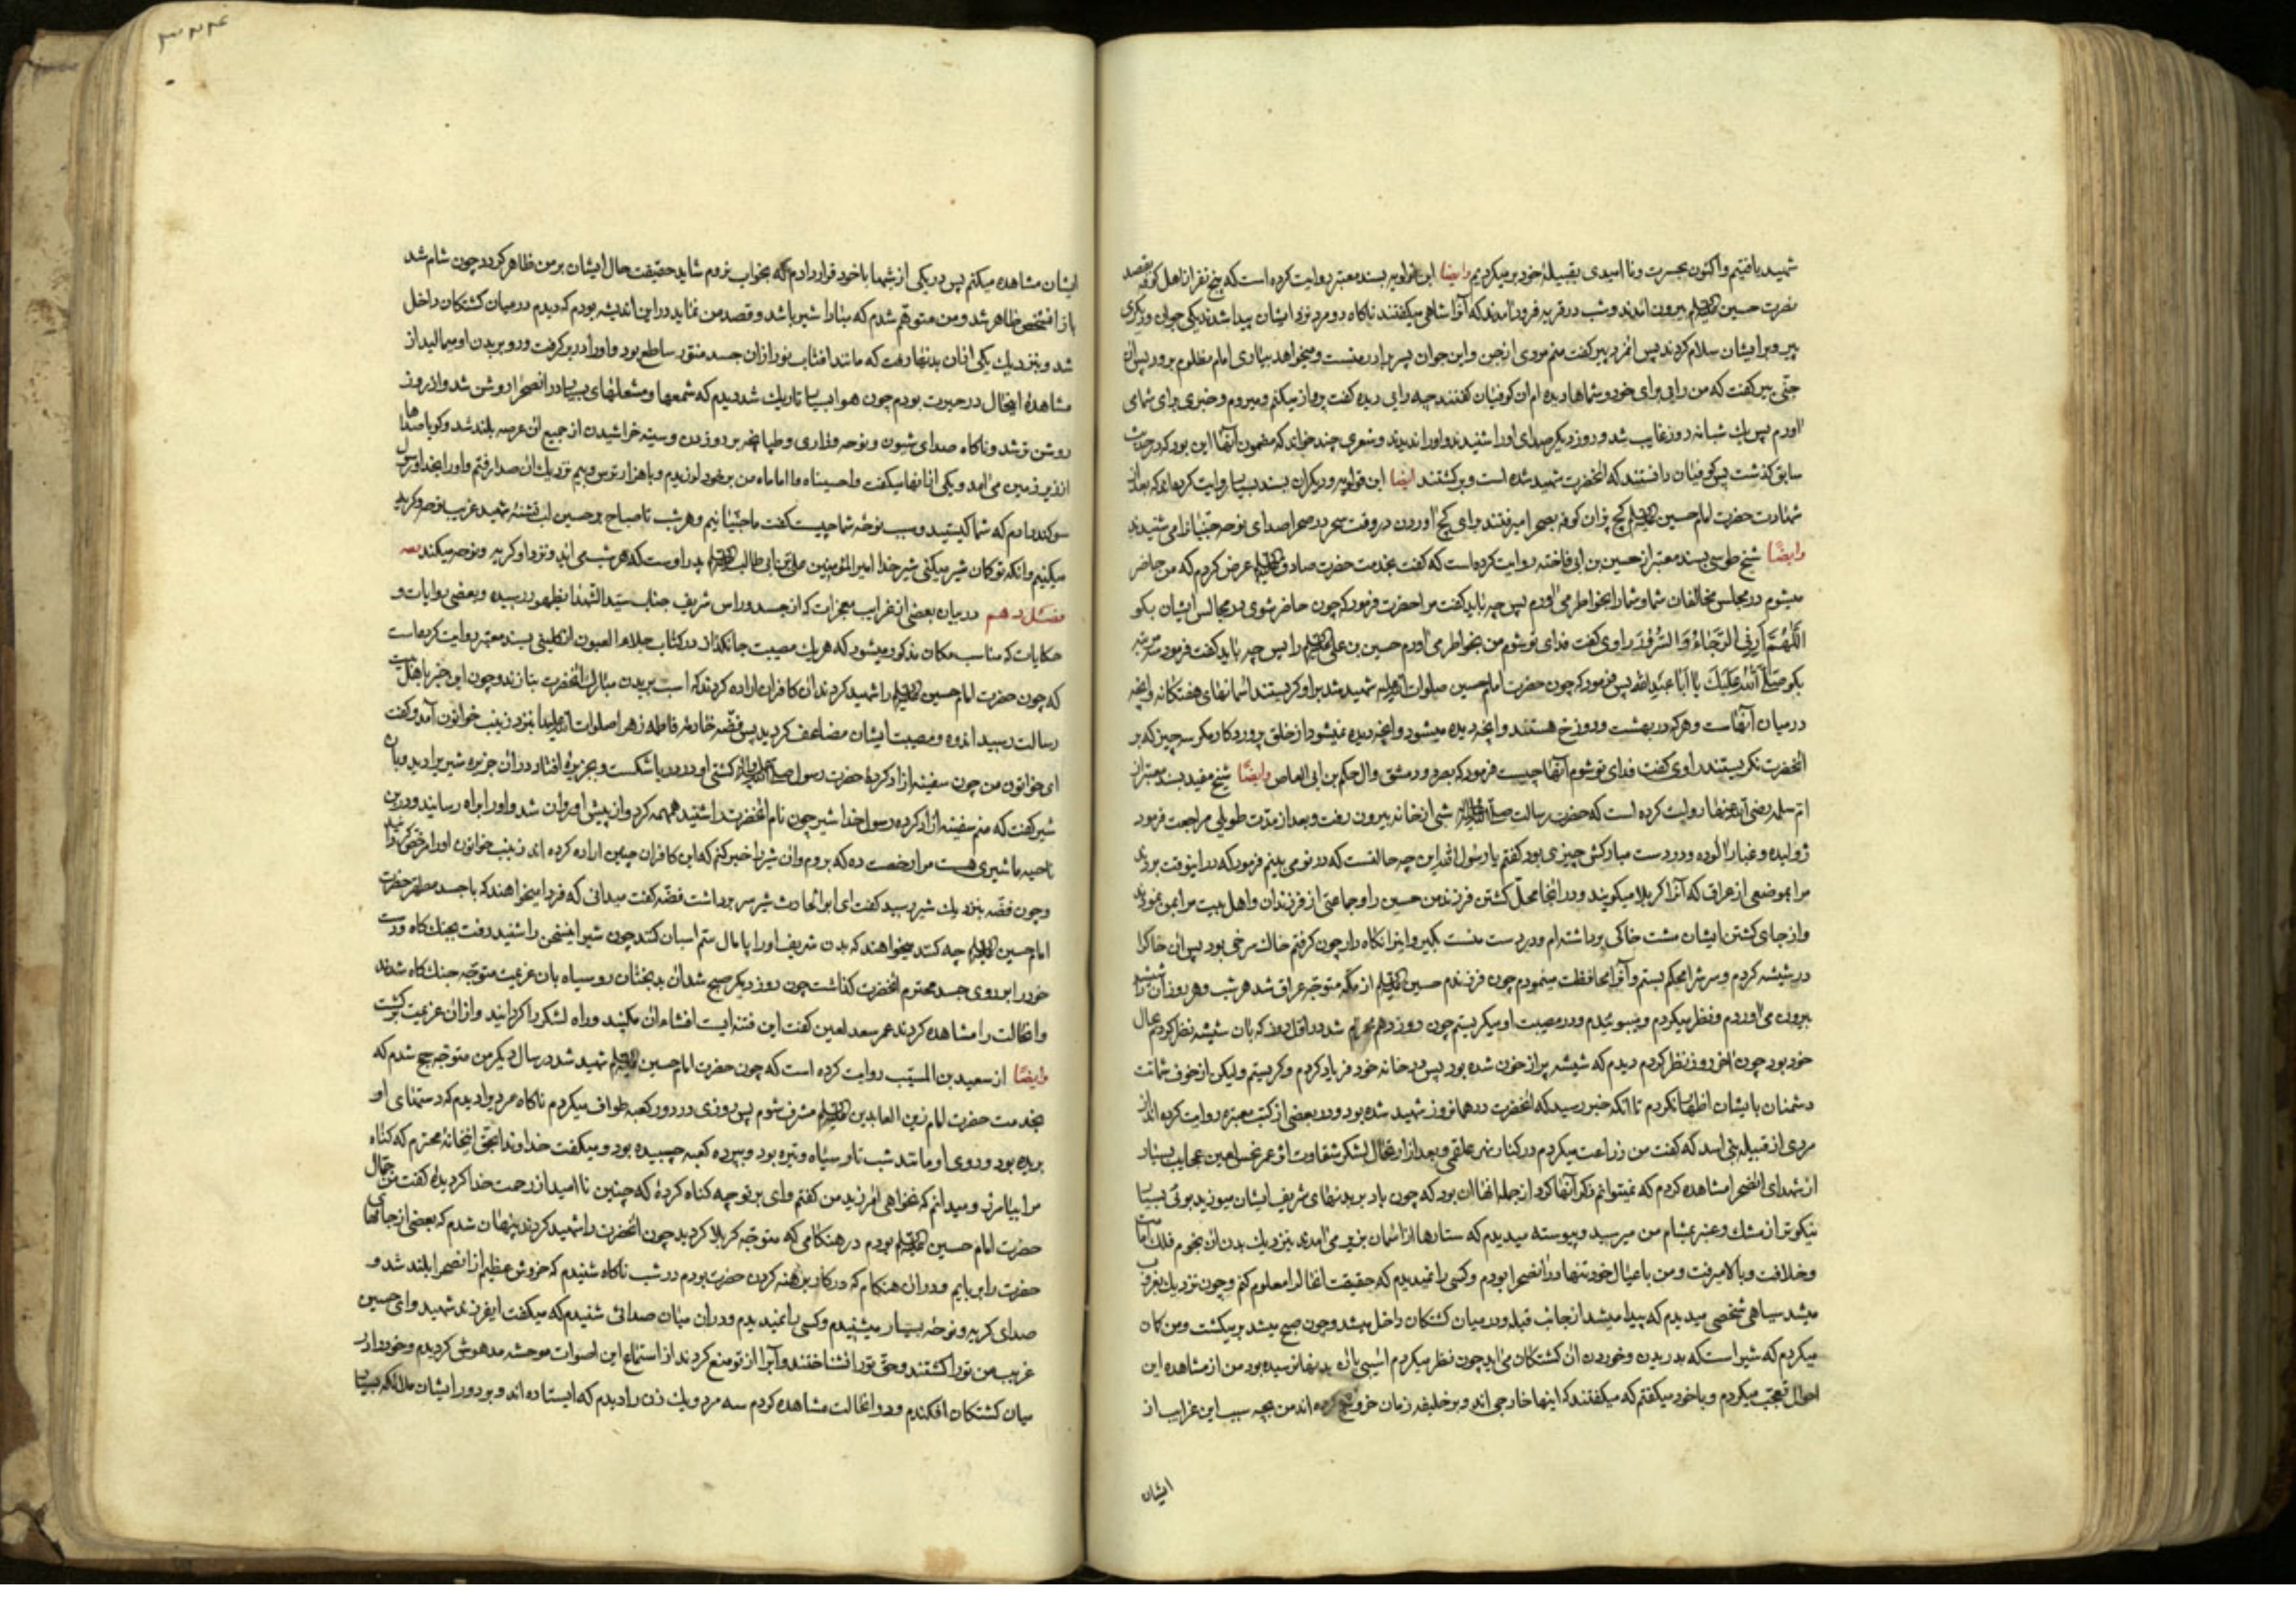 شهید یافتیم و اکنون بحسرت و ناامیدی بقبیلهٔ خود برمیگردیم وایضا ابن قولویه بسند معتبر روایت کرده است که پنج نفر از اهل کوفه بقصد
حضرت حسین علیه السلم بیرون آمدند و شب در قریه فرود آمدند که آنرا شاهی میگفتند ناگاه دو مرد نزد ایشان پیدا شدند یکی جوان و دیگری
پیر و بر ایشان سلام کردند پس آنمرد پیر گفت منم مردی از جن و این جوان پسر برادر منست و میخواهد بیاری امام مظلوم برود پس آن
جنّی پیر گفت که من رایی برای خود و شماها دیده ام آن کوفیان گفتند چه رایی دیدهٔ گفت پرواز میکنم و میروم و خبری برای شما می
آورم پس یك شبانه روز غایب شد و روز دیگر صدای او را شنیدند و او را ندیدند و شعری چند خواند که مضمون آنها این بود که در حدیث
سابق گذشت پس کوفیان دانستند که آنحضرت شهید شده است و برگشتند ایضا ابن قولویه و دیگران بسند بسیار روایت کرده اند که بعد از
شهادت حضرت امام حسین علیه السلم گچ پزان کوفه بصحرا میرفتند برای گچ آوردن در وقت سحر در صحرا صدای نوحه جنّیانرا می شنیدند
وایضًا شیخ طوسی بسند معتبر از حسین بن ابی فاخته روایت کرده است که گفت بخدمت حضرت صادق علیه السلم عرض کردم که من حاضر
میشوم در مجالس مخالفان شما و شما را بخاطر می آورم پس چه باید گفت مرا حضرت فرمود که چون حاضر شوی در مجالس ایشان بگو
اَللّٰهُمَّ اَرِنِی الرَّخَاءَ وَ السُّرُورَ راوی گفت فدای تو شوم من بخاطر می آورم حسین بن علی علیه السلم را پس چه باید گفت فرمود سه مرتبه
بگو صَلَّی اللّٰهُ عَلَیْكَ یَا اَبَا عَبْدِ اللّٰهِ پس فرمود که چون حضرت امام حسین صلوات الله علیه شهید شد بر او گریستند آسمانهای هفتگانه و آنچه
در میان آنهاست و هر که در بهشت و دوزخ هستند و آنچه دیده میشود و آنچه دیده نمیشود از خلق پروردگار مگر سه چیز که بر
آنحضرت نگریستند راوی گفت فدای تو شوم آنها چیست فرمود که بصره و دمشق و ال حکم بن ابی العاص وایضًا شیخ مفید بسند معتبر از
ام سلمه رضی الله عنها روایت کرده است که حضرت رسالت صلی الله علیه و آله شبی از خانه بیرون رفت و بعد از مدّت طویلی مراجعت فرمود
ژولیده و غبار آلوده و در دست مبارکش چیزی بود گفتم یا رسول الله این چه حالتست که در تو می بینم فرمود که در اینوقت بردند
مرا بموضعی از عراق که آنرا کربلا میگویند و در آنجا محلّ کشتن فرزند من حسین را و جماعتی از فرزندان و اهل بیت مرا بمن نمودند
و از جای کشتن ایشان مشت خاکی برداشته ام و در دست منست بگیر و اینرا نگاه دار چون گرفتم خاك سرخی بود پس آن خاك را
در شیشه کردم و سرش را محکم بستم و آنرا محافظت مینمودم چون فرزندم حسین علیه السلم از مکّه متوجّه عراق شد هر شب و هر روز آن شیشه را
بیرون می آوردم و نظر میکردم و میبوئیدم و در مصیبت او میگریستم چون روز دهم محرم شد در اول روز که بآن شیشه نظر کردم بحال
خود بود چون آخر روز نظر کردم دیدم که شیشه پر از خون شده بود پس در خانه خود فریاد کردم و گریستم ولیکن از خوف شماتت
دشمنان با ایشان اظهار نکردم تا آنکه خبر رسید که آنحضرت در همانروز شهید شده بود و در بعضی از کتب معتبره روایت کرده اند از
مردی از قبیله بنی اسد که گفت من زراعت میکردم در کنار نهر علقمی و بعد از ارتحال لشکر شقاوت اثر عمر نحس لعین عجایب بسیار
از شهدای آنصحرا مشاهده کردم که نمیتوانم ذکر آنها کرد از جمله آنها آن بود که چون باد بر بدنهای شریف ایشان میوزید بوئی بسیار
نیکوتر از مشك و عنبر بمشام من میرسید و پیوسته میدیدم که ستارها از آسمان بزیر می آمدند بنزدیك بدن آن نجوم فلك امامت
و خلافت و بالا میرفت و من با عیال خود تنها در آنصحرا بودم و کسی را نمیدیدم که حقیقت آنحال را معلوم کنم و چون نزدیك بغروب
میشد سیاهی شخصی میدیدم که پیدا میشد از جانب قبله و در میان کشتگان داخل میشد و چون صبح میشد برمیگشت و من گان
میکردم که شیر است که بدریدن و خوردن آن کشتگان می آید چون نظر میکردم آسیبی بآن بدنها نرسیده بود من از مشاهده این
احوال تعجب میکردم و با خود میگفتم که میگفتند که اینها خارجی اند و بر خلیفه زمان خروج کرده اند من بچه سبب این غرایب از
ایشان
ایشان مشاهده میکنم پس در یکی از شبها با خود قرار دادم که بخواب نروم شاید حقیقت حال ایشان بر من ظاهر گردد چون شام شد
باز آنشخص ظاهر شد و من متوهّم شدم که مبادا شیر باشد و قصد من نماید در این اندیشه بودم که دیدم در میان کشتگان داخل
شد و بنزدیك یکی از آن بدنها رفت که مانند آفتاب نور از آن جسد منوّر ساطع بود و او را در بر گرفت و رو بر بدن او میمالید از
مشاهدهٔ اینحال در حیرت بودم چون هوا بسیار تاریك شد دیدم که شمعها و مشعلهای بسیار در آنصحرا روشن شد و از روز
روشن تر شد و ناگاه صدای شیون و نوحه و زاری و طپانچه بر رو زدن و سینه خراشیدن از جمیع آن عرصه بلند شد و گویا صداها
از زیر زمین می آمد و یکی از آنها میگفت وا حسیناه وا اماماه من بر خود لرزیدم و با هزار ترس و بیم نزدیك آن صدا رفتم و او را بخدا و رسول
سوگند دادم که شما کیستید و سبب نوحهٔ شما چیست گفت ما جنّیانیم و هر شب تا صباح بر حسین لب تشنهٔ شهید غریب نوحه و گریه
میکنیم و آنکه تو گان شیر میکنی شیر خدا امیر المؤمنین علی بن ابی طالب علیه السلم پدر اوست که هر شب می آید و نزد او گریه و نوحه میکند
فصل دهم در بیان بعضی از غرایب معجزات که از جسد و راس شریف جناب سیّد الشهدا بظهور رسیده و بعضی روایات و
حکایات که مناسب مکان مذکور میشود که هر یك مصیبت جانگداز در کتاب جلاء العیون از کلینی بسند معتبر روایت کرده است
که چون حضرت امام حسین علیه السلم را شهید کردند آن کافران اراده کردند که اسب بر بدن مبارك آنحضرت بتازند و چون این خبر باهل بیت
رسالت رسید اندوه و مصیبت ایشان مضاعف گردید پس فضّه خادمهٔ فاطمه زهرا صلوات الله علیها بنزد زینب خواتون آمد و گفت
ای خواتون من چون سفینه آزاد کردهٔ حضرت رسول صلی الله علیه و آله کشتی او در دریا شکست و بجزیرهٔ افتاد در آن جزیره شیری را دید و بآن
شیر گفت که منم سفینه آزاد کرده رسول خدا شیر چون نام آنحضرت را شنید همهمه کرد و از پیش او روان شد و او را براه رسانید و در این
ناحیه ما شیری هست مرا رخصت ده که بروم و آن شیر را خبر کنم که این کافران چنین اراده کرده اند زینب خواتون او را مرخص کردانید
و چون فضّه بنزدیك شیر رسید گفت ای ابو الحارث شیر سر برداشت فضّه گفت میدانی که فردا میخواهند که با جسد مطهّر حضرت
امام حسین علیه السلم چه کنند میخواهند که بدن شریف او را پامال ستم اسبان کنند چون شیر این سخن را شنید رفت بجنك گاه و دست
خود را بر روی جسد محترم آنحضرت گذاشت چون روز دیگر صبح شد آن بدبختان رو سیاه بآن عزیمت متوجّه جنك گاه شدند
و آنحالت را مشاهده کردند عمر سعد لعین گفت این فتنه ایست افشاء آن مکنید و راه لشکر را گردانید و از آن عزیمت برگشت
وایضًا از سعید بن المسیّب روایت کرده است که چون حضرت امام حسین علیه السلم شهید شد در سال دیگر من متوجّه حج شدم که
بخدمت حضرت امام زین العابدین علیه السلم مشرف شوم پس روزی در دور کعبه طواف میکردم ناگاه مردیرا دیدم که دستهای او
بریده بود و روی او مانند شب تار سیاه و تیره بود و بپرده کعبه چسبیده بود و میگفت خداوندا بحقّ اینخانهٔ محترم که گناه
مرا بیامرز و میدانم که نخواهی آمرزید من گفتم وای بر تو چه گناه کردهٔ که چنین ناامید از رحمت خدا گردیدهٔ گفت من جمّال
حضرت امام حسین علیه السلم بودم در هنگامی که متوجّه کربلا گردید چون آنحضرت را شهید کردند پنهان شدم که بعضی از جامهای
حضرت را بربایم و در آن هنگام که در کار برهنه کردن حضرت بودم در شب ناگاه شنیدم که خروش عظیم از آنصحرا بلند شد و
صدای گریه و نوحهٔ بسیار میشنیدم و کسی را نمیدیدم و در آن میان صدائی شنیدم که میگفت ای فرزند شهید و ای حسین
غریب من تو را کشتند و حقّ تو را نشناختند و آب را از تو منع کردند از استماع این اصوات موحشه مدهوش گردیدم و خود را در
میان کشتگان افکندم و در آنحالت مشاهده کردم سه مرد و یك زن را دیدم که ایستاده اند و بر دور ایشان ملائکه بسیار